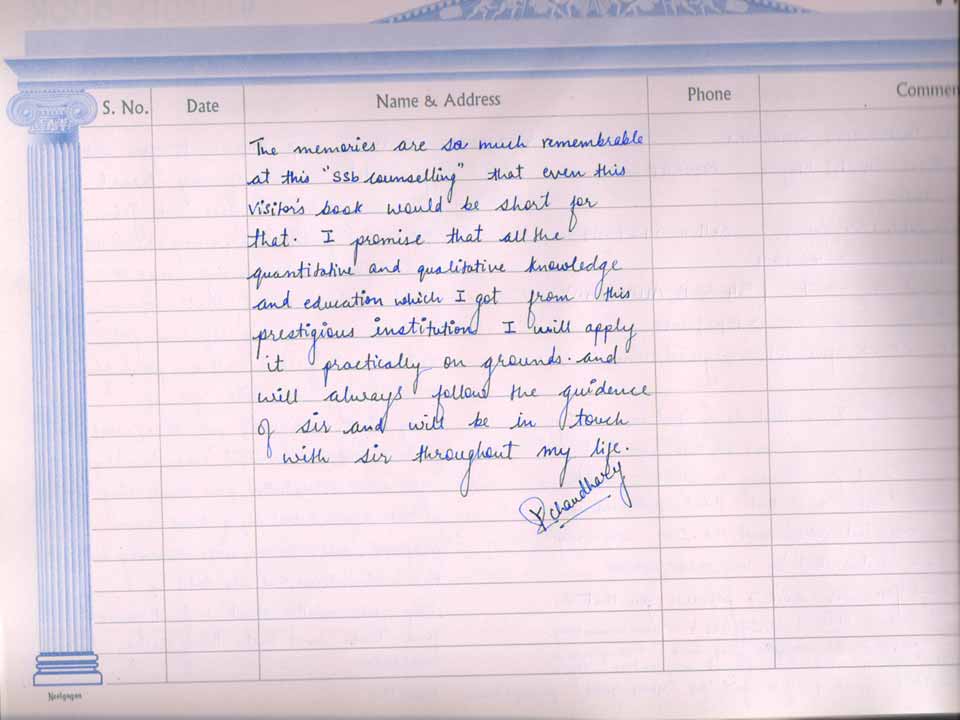 S. No. Date Name & Address Phone Commen
The memories are so much remembrable
at this "SSb counselling" that even this
visitor's book would be short for
that. I promise that all the
quantitative and qualitative knowledge
and education which I got from this
prestigious institution I will apply
it practically on grounds. and
will always follow the guidence
of sir and will be in touch
with sir throughout my life.
Pchaudhary
Neelgagan